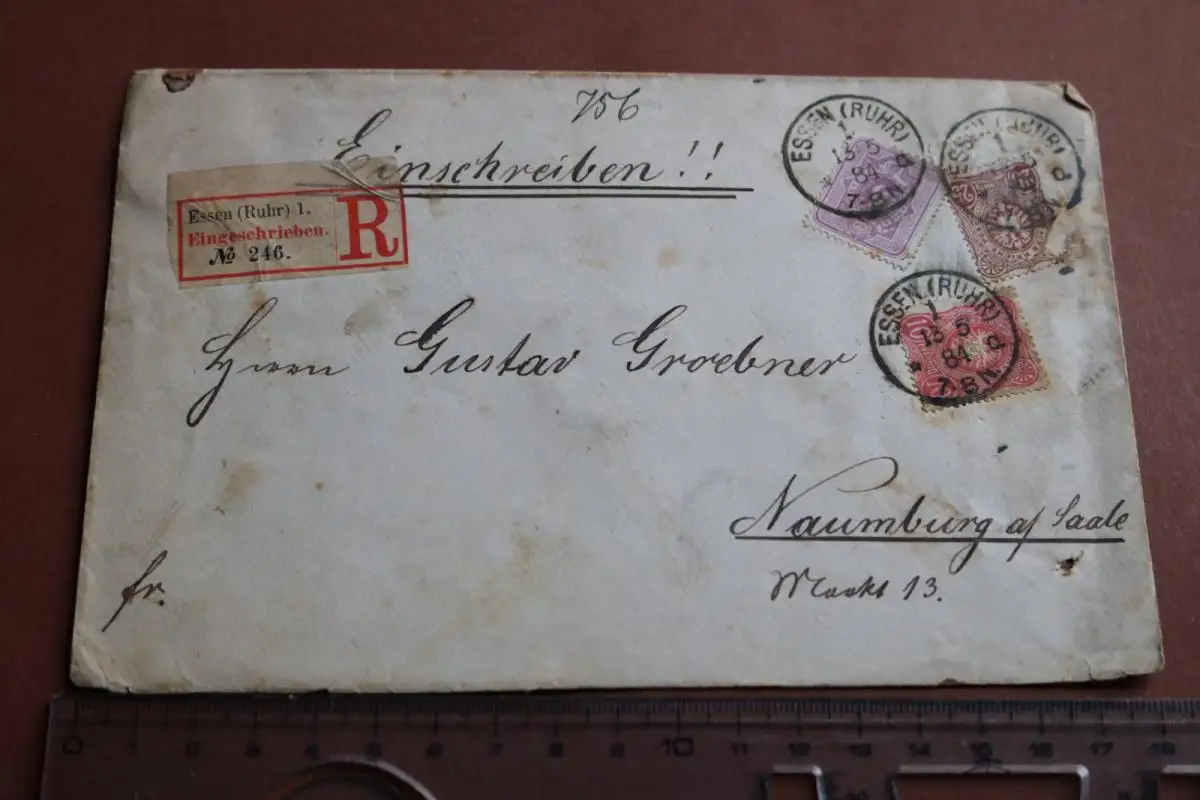 756
Einschreiben!!
Essen (Ruhr) 1.
Eingeschrieben.
№ 246.
R
ESSEN (RUHR)
1
13 5
84
7-8 N.
* d
ESSEN
1
d
ESSEN (RUHR)
1
13 5
84
7-8 N.
* d
Herrn Gustav Groebner
Naumburg a/ Saale
Markt 13.
fr.
0 1 10 11 12 13 14 15 16 17 18